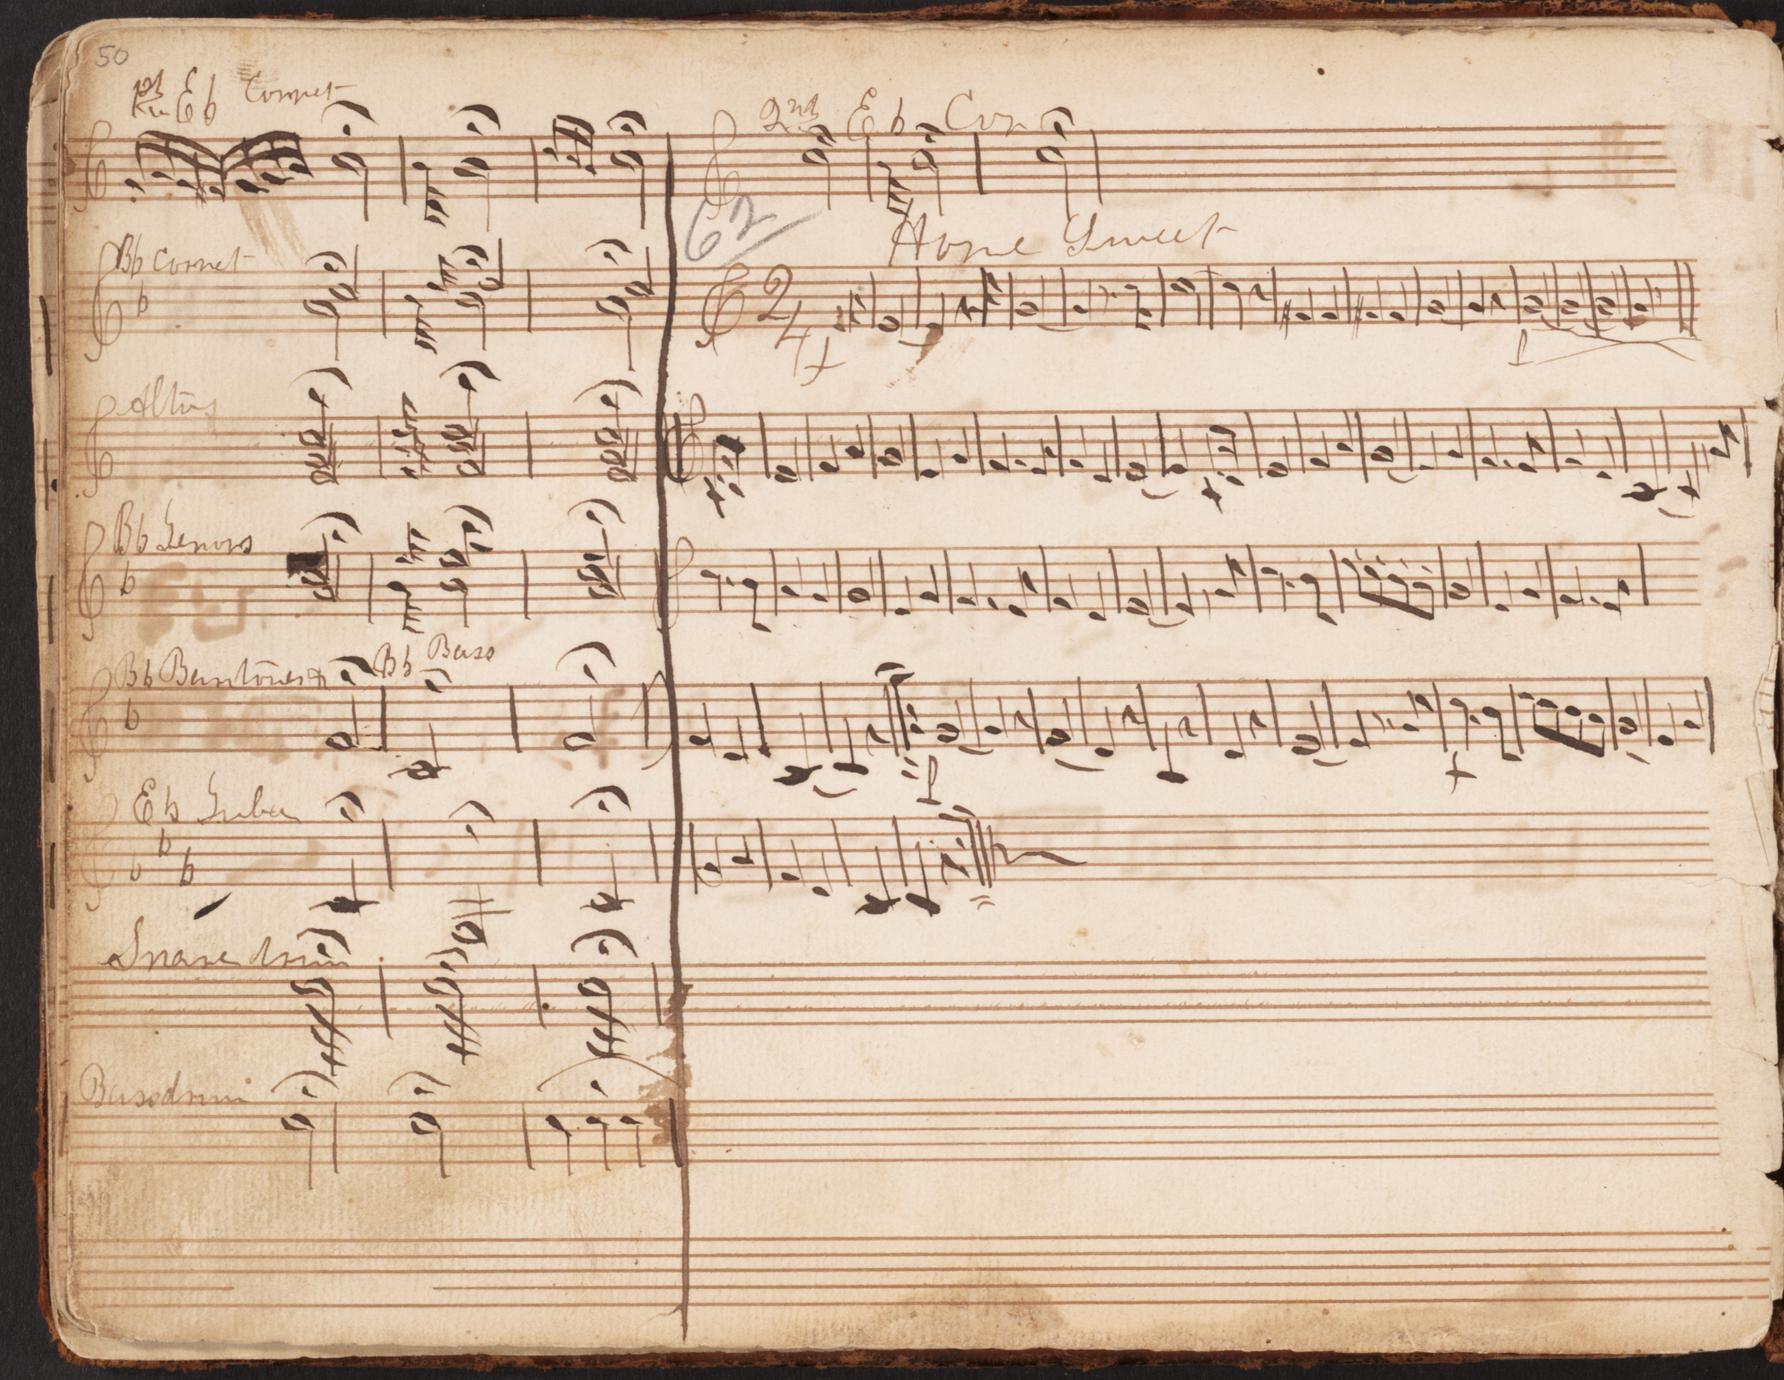 50
1st Eb Cornet
2nd Eb Cor
62
Hope Sweet
Bb Cornet
2/4
Altos
Bb Tenors
Bb Baritones
Bb Bass
Eb Tuba
Snare drum
Bassdrum